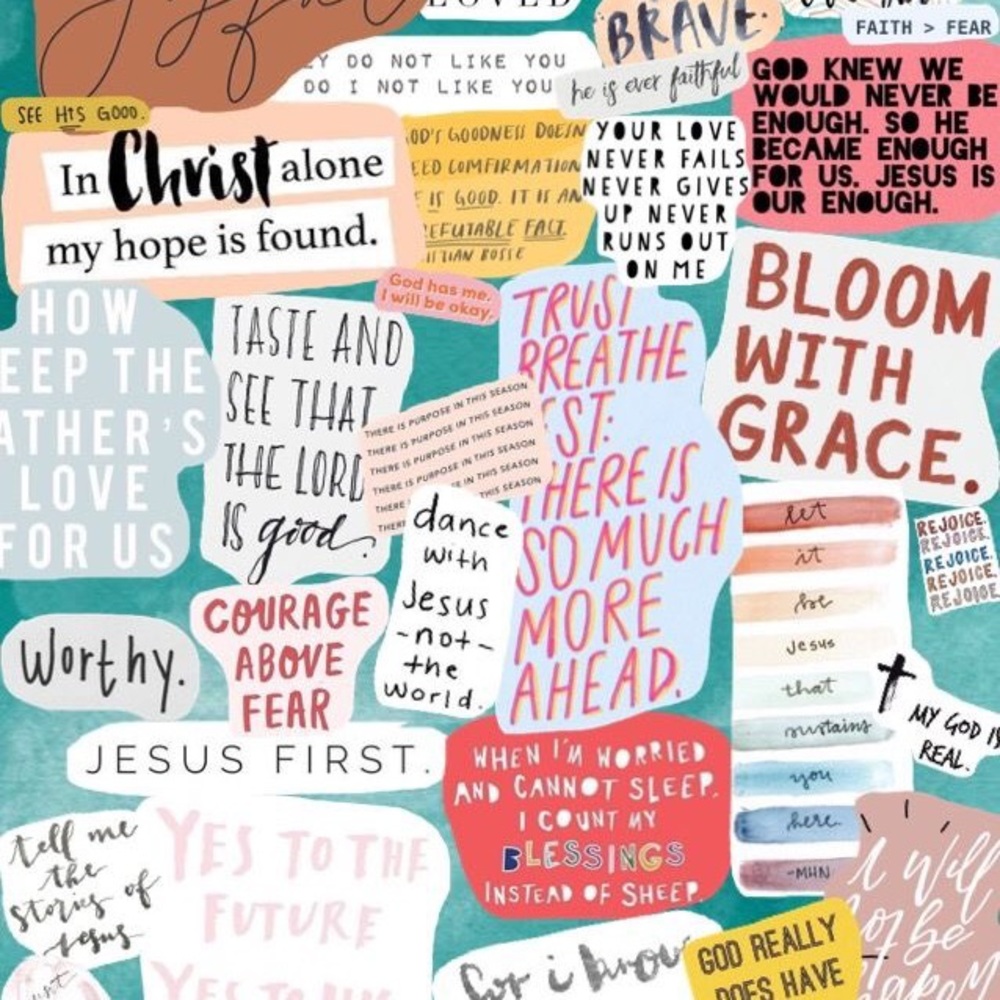 LOVED
BRAVE.
FAITH > FEAR
DO NOT LIKE YOU
DO I NOT LIKE YOU
he is ever faithful
SEE HIS GOOD.
In Christ alone
my hope is found.
GOD'S GOODNESS DOESN
EED COMFIRMATION
IS GOOD. IT IS AN
EFUTABLE FACT.
YOUR LOVE
NEVER FAILS
NEVER GIVES
UP NEVER
RUNS OUT
ON ME
GOD KNEW WE
WOULD NEVER BE
ENOUGH. SO HE
BECAME ENOUGH
FOR US. JESUS IS
OUR ENOUGH.
God has me.
I will be okay.
HOW
EEP THE
ATHER'S
LOVE
FOR US
TASTE AND
SEE THAT
THE LORD
IS good.
THERE IS PURPOSE IN THIS SEASON
THERE IS PURPOSE IN THIS SEASON
THERE IS PURPOSE IN THIS SEASON
THERE IS PURPOSE IN THIS SEASON
THERE IN THIS SEASON
THERE THIS SEASON
TRUST
BREATHE
EST:
THERE IS
SO MUCH
MORE
AHEAD.
BLOOM
WITH
GRACE.
let
it
be
Jesus
that
sustains
you
here
-MHN
REJOICE.
REJOICE.
REJOICE.
REJOICE.
REJOICE.
dance
with
Jesus
-not-
the
world.
Worthy.
COURAGE
ABOVE
FEAR
MY GOD IS
REAL.
JESUS FIRST.
WHEN I'M WORRIED
AND CANNOT SLEEP,
I COUNT MY
BLESSINGS
INSTEAD OF SHEEP.
tell me
the
stories of
Jesus
YES TO THE
FUTURE
YES TO
for i know
GOD REALLY
DOES HAVE
I will
not be
shaken